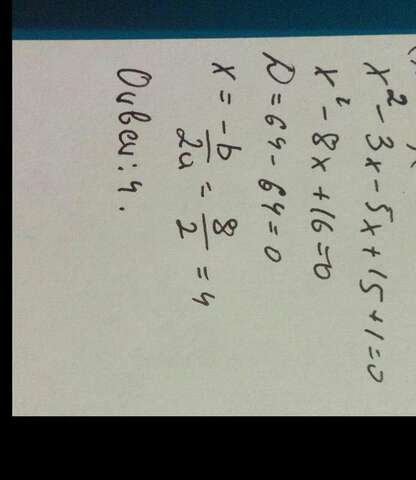 x² - 3x - 5x + 15 + 1 = 0
x² - 8x + 16 = 0
D = 64 - 64 = 0
x = -b/2a = 8/2 = 4
Ответ: 4.